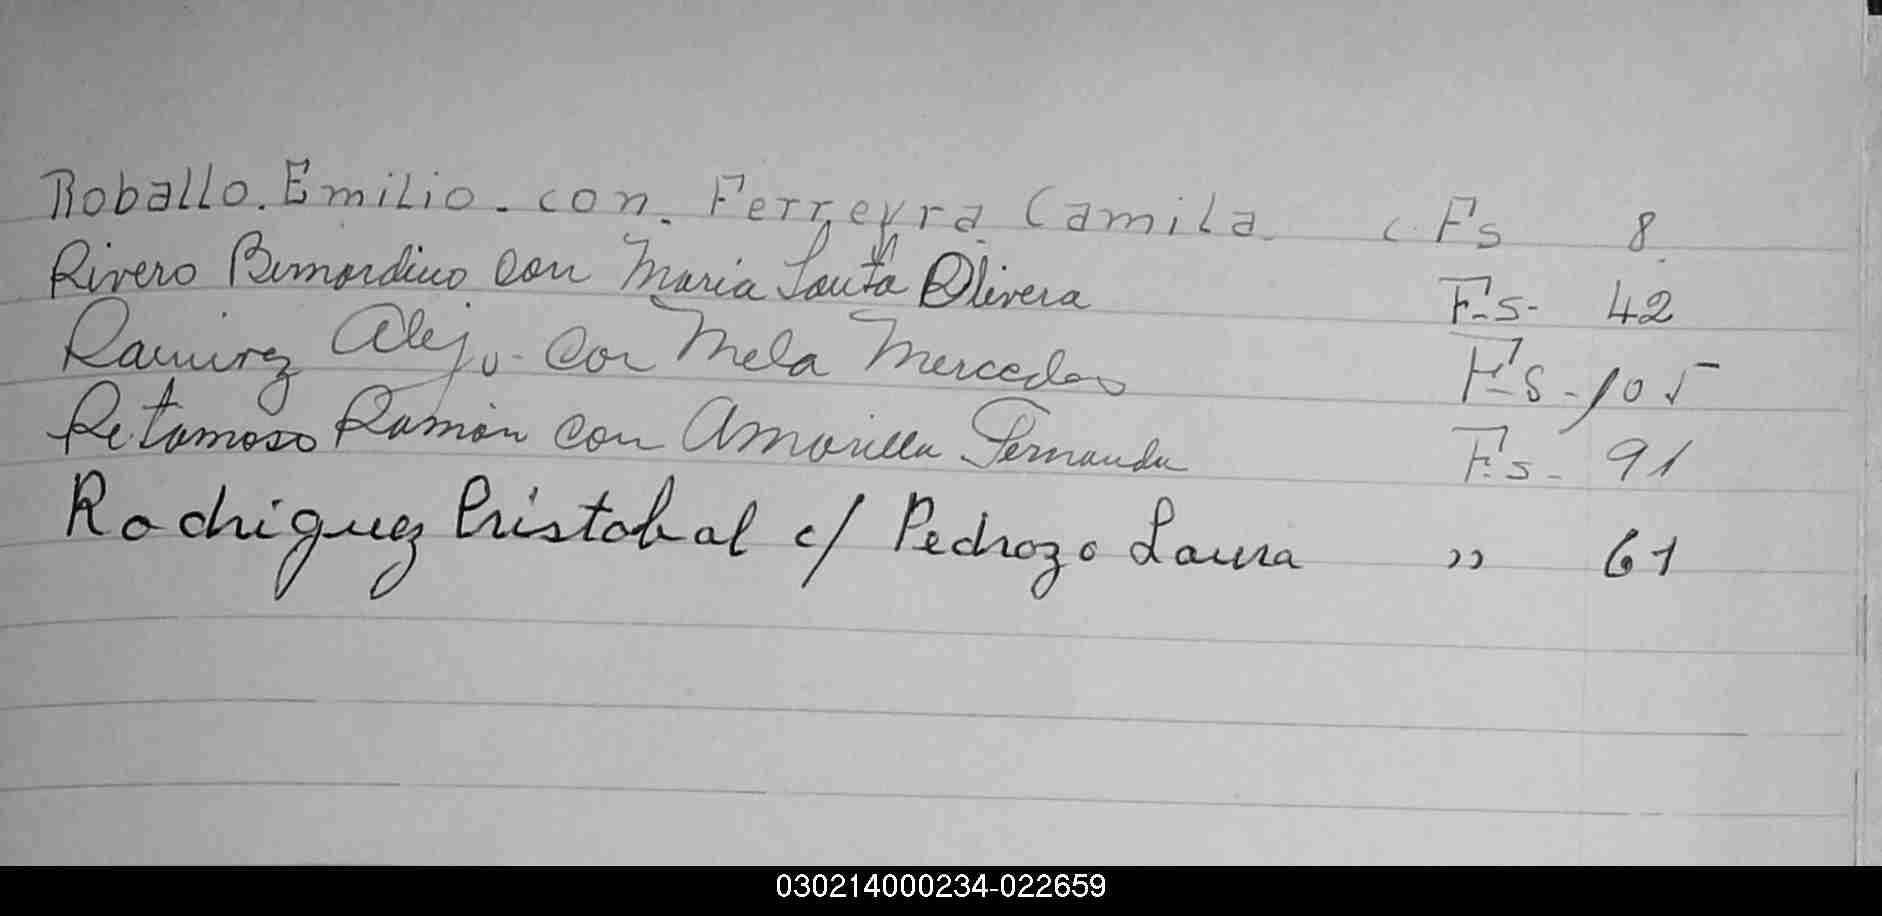 Roballo. Emilio. con. Ferreyra Camila c. Fs 8
Rivero Bernardino con Maria Santa Olivera Fs- 42
Ramirez Alejo- con Mela Mercedes Fs- 105
Retamoso Ramón con Amarilla Fernanda Fs- 91
Rodriguez Cristobal c/ Pedrozo Laura " 61
030214000234-022659